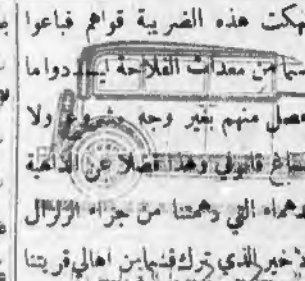 نهكت هذه الضريبة قواهم فباعوا
من معدات الفلاحة ليسددوا ما
منهم بغير وجه مشروع ولا
قانوني وهذا فضلا عن
التي دهمتنا من جراء الزلزال
الذي ترك قسما من اهالي قريتنا